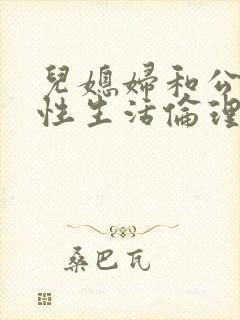 兒媳婦和公
性生活倫理
桑巴瓦